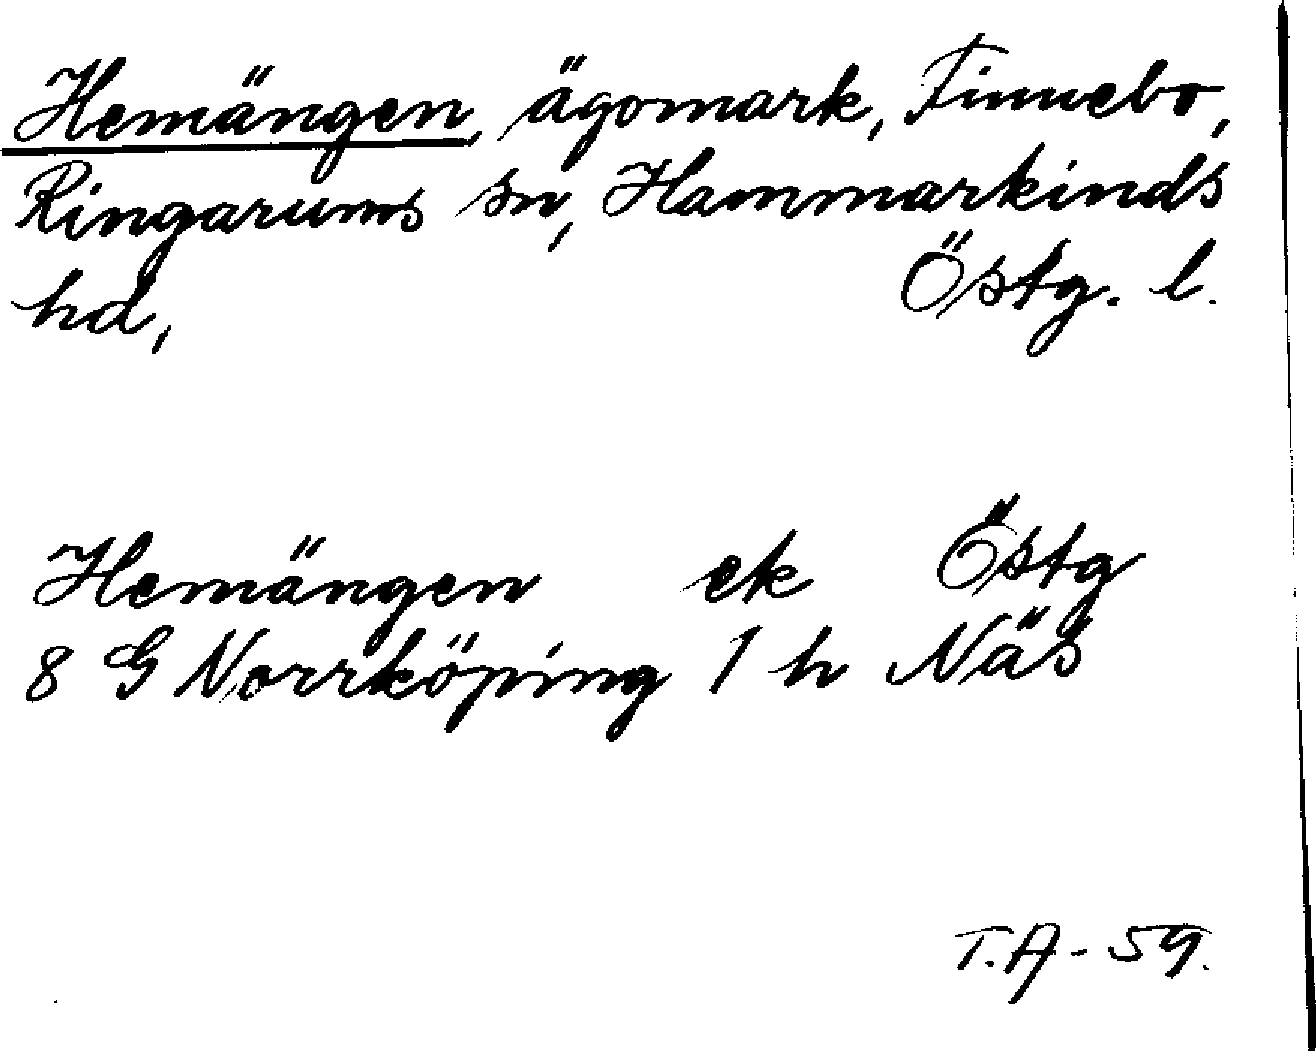 Hemängen, ägomark, Finnebo,
Ringarums sn, Hammarkinds
hd, Östg. l.
Hemängen ek Östg
8 G Norrköping 1 h Näs
T.A-59.